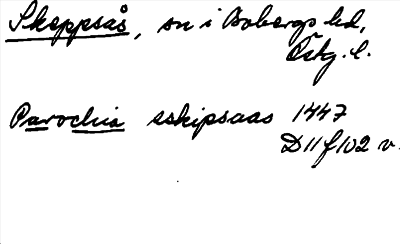 Skeppsås, sn i Bobergs hd,
Östg. l.
Parochia sskipsaas 1447
D 11 f 102 v.